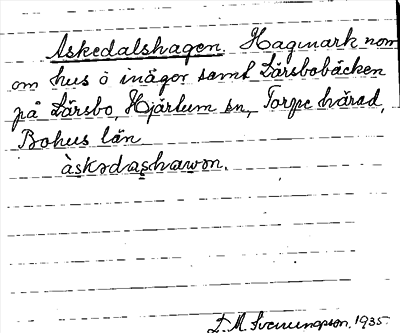 Askedalshagen. Hagmark norr
om hus o inägor samt Lärsbobäcken
på Lärsbo, Hjärtum sn, Torpe härad,
Bohus län
àskədashawən.
1935